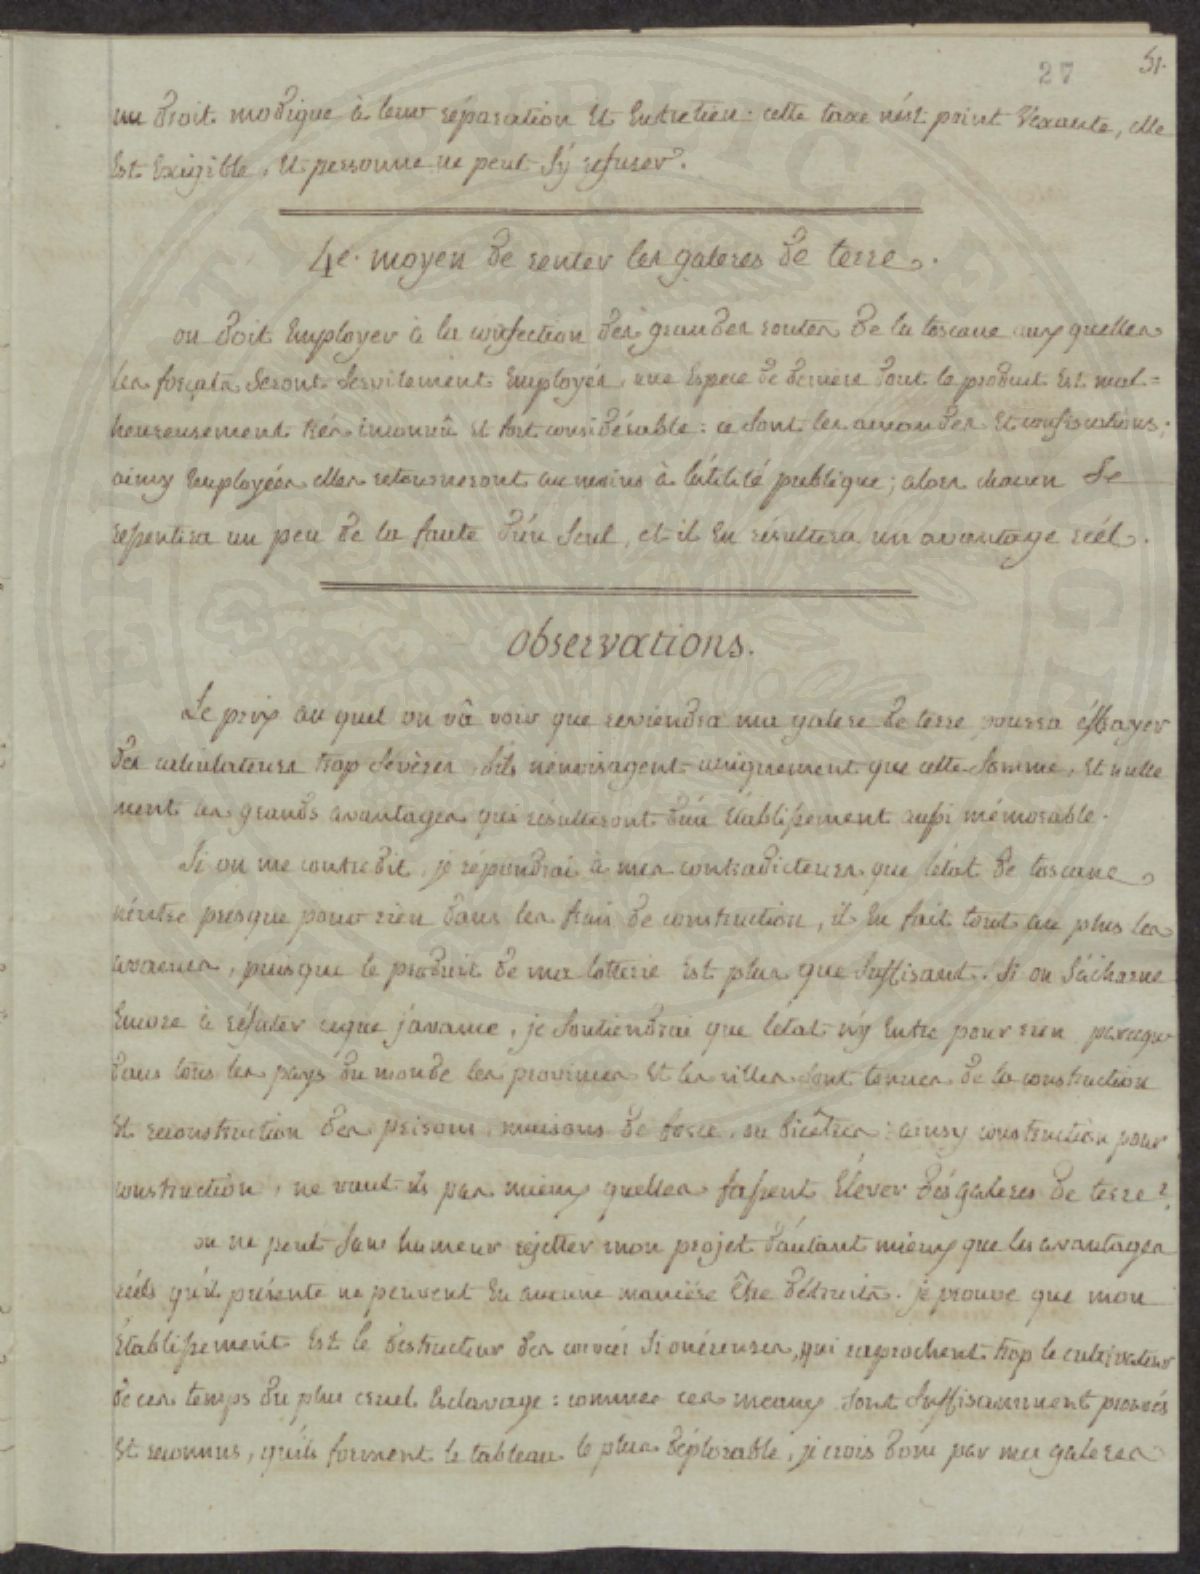 27 51.
un droit modique à leur réparation Et Entretien: cette taxe n'ést point Véxante, elle
Est Exigible, Et personne ne peut s'ÿ refuser.
4e. moyen de renter les galeres de terre.
on doit Employer à la confection des grandes routes de la toscane aux quelles
les forçats seront servilement Employés, une Espece de deniers dont le produit Est mal=
heureusement trés inconnû Et fort considérable: ce sont les amendes Et confiscations;
ainsy Employées elles retourneront au moins à l'utilité publique; alors chacun se
repentira un peu de la faute d'ún seul, et il En résultera un avantage réel.
observations.
Le prix au quel on vâ voir que reviendra ma galere de terre pourra éffrayer
des calculateurs trop sévères, s'ils n'envisagent uniquement que cette somme, Et nulle
ment les grands avantages qui résulteront d'ún Établissement aussi mémorable.
Si on me contredit, je répondrai à mes contradicteurs que l'état de toscane
n'entre presque pour rien dans les frais de construction, il En fait tout au plus les
avances, puisque le produit de ma lotterie Est plus que suffisant. Si on s'acharne
Encore à réfuter ceque j'avance, je soutiendrai que l'état n'y Entre pour rien parceque
dans tous les pays du monde les provinces Et les villes sont tenues de la construction
Et reconstruction des prisons, maisons de force, ou bicêtres: ainsy construction pour
construction, ne vaut-ils pas mieux quelles fassent Élever dés galeres de terre?
on ne peut sans humeur rejetter mon projet d'autant mieux que les avantages
réels qu'il présente ne peuvent En aucune manière être détruits. je prouve que mon
Établissement Est le destructeur des corvées si onéreuses, qui raprochent trop le cultivateur
de ces temps du plus cruel Esclavage: comme ces meaux sont suffisamment prouvés
Et reconnus, qu'ils forment le tableau le plus déplorable, je crois donc par mes galeres